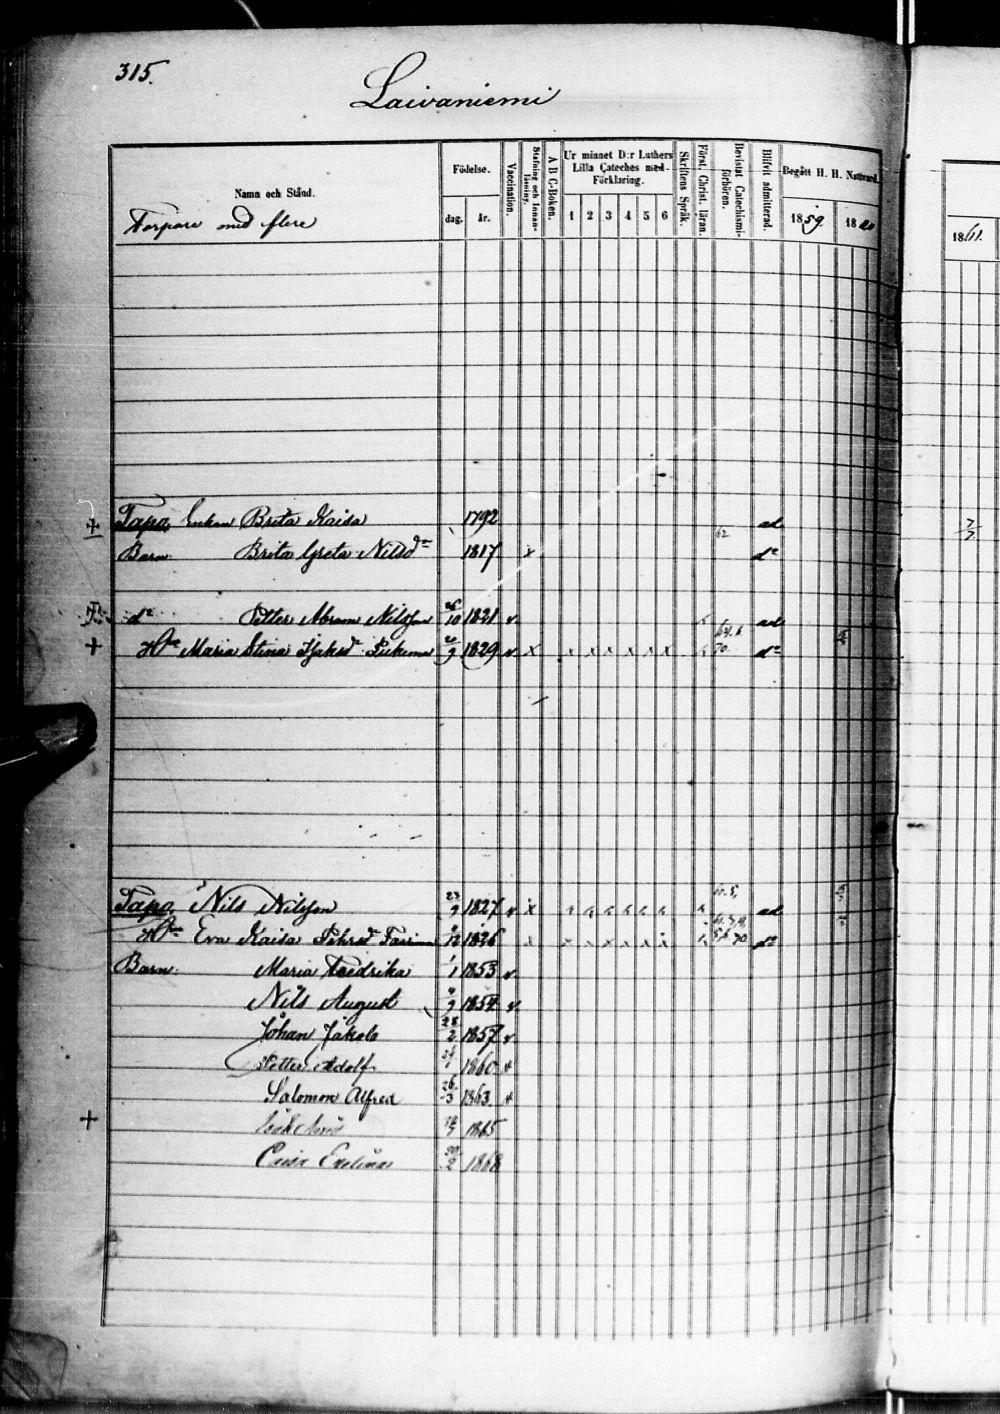 315.
Laivaniemi
Namn och Stånd.
Födelse.
dag. år.
Vaccination.
Stafning och Innanläsning.
A B C-Boken.
Ur minnet D:r Luthers
Lilla Cateches med
Förklaring.
1 2 3 4 5 6
Skriftens Språk.
Först. Christ. läran.
Bevistat Catechismiförhören.
Blifvit admitterad.
Begått H. H. Nattvard.
1859. 1860
1861.
Torpare med flere
Tapo, Enkan Brita Kaisa 1792 62 ad 7/7
Barn: Brita Greta Nilsdr 1817 x do
do Petter Abram Nilsson 10 1821 v ad
Hu Maria Stina 9 1829 v x x x x x x x 70 do
Tapo, Nils Nilsson 23/9 1827 v x ad
Hu Eva Kaisa 12 1826 x 70 do
Barn: Maria Fredrika 1/1 1853 v
Nils August 9 1854 v
Johan Jakob 28/2 1857 v
Petter Adolf 1860
Salomon Alfred 26/3 1863
1865
Evelina 20/2 1868